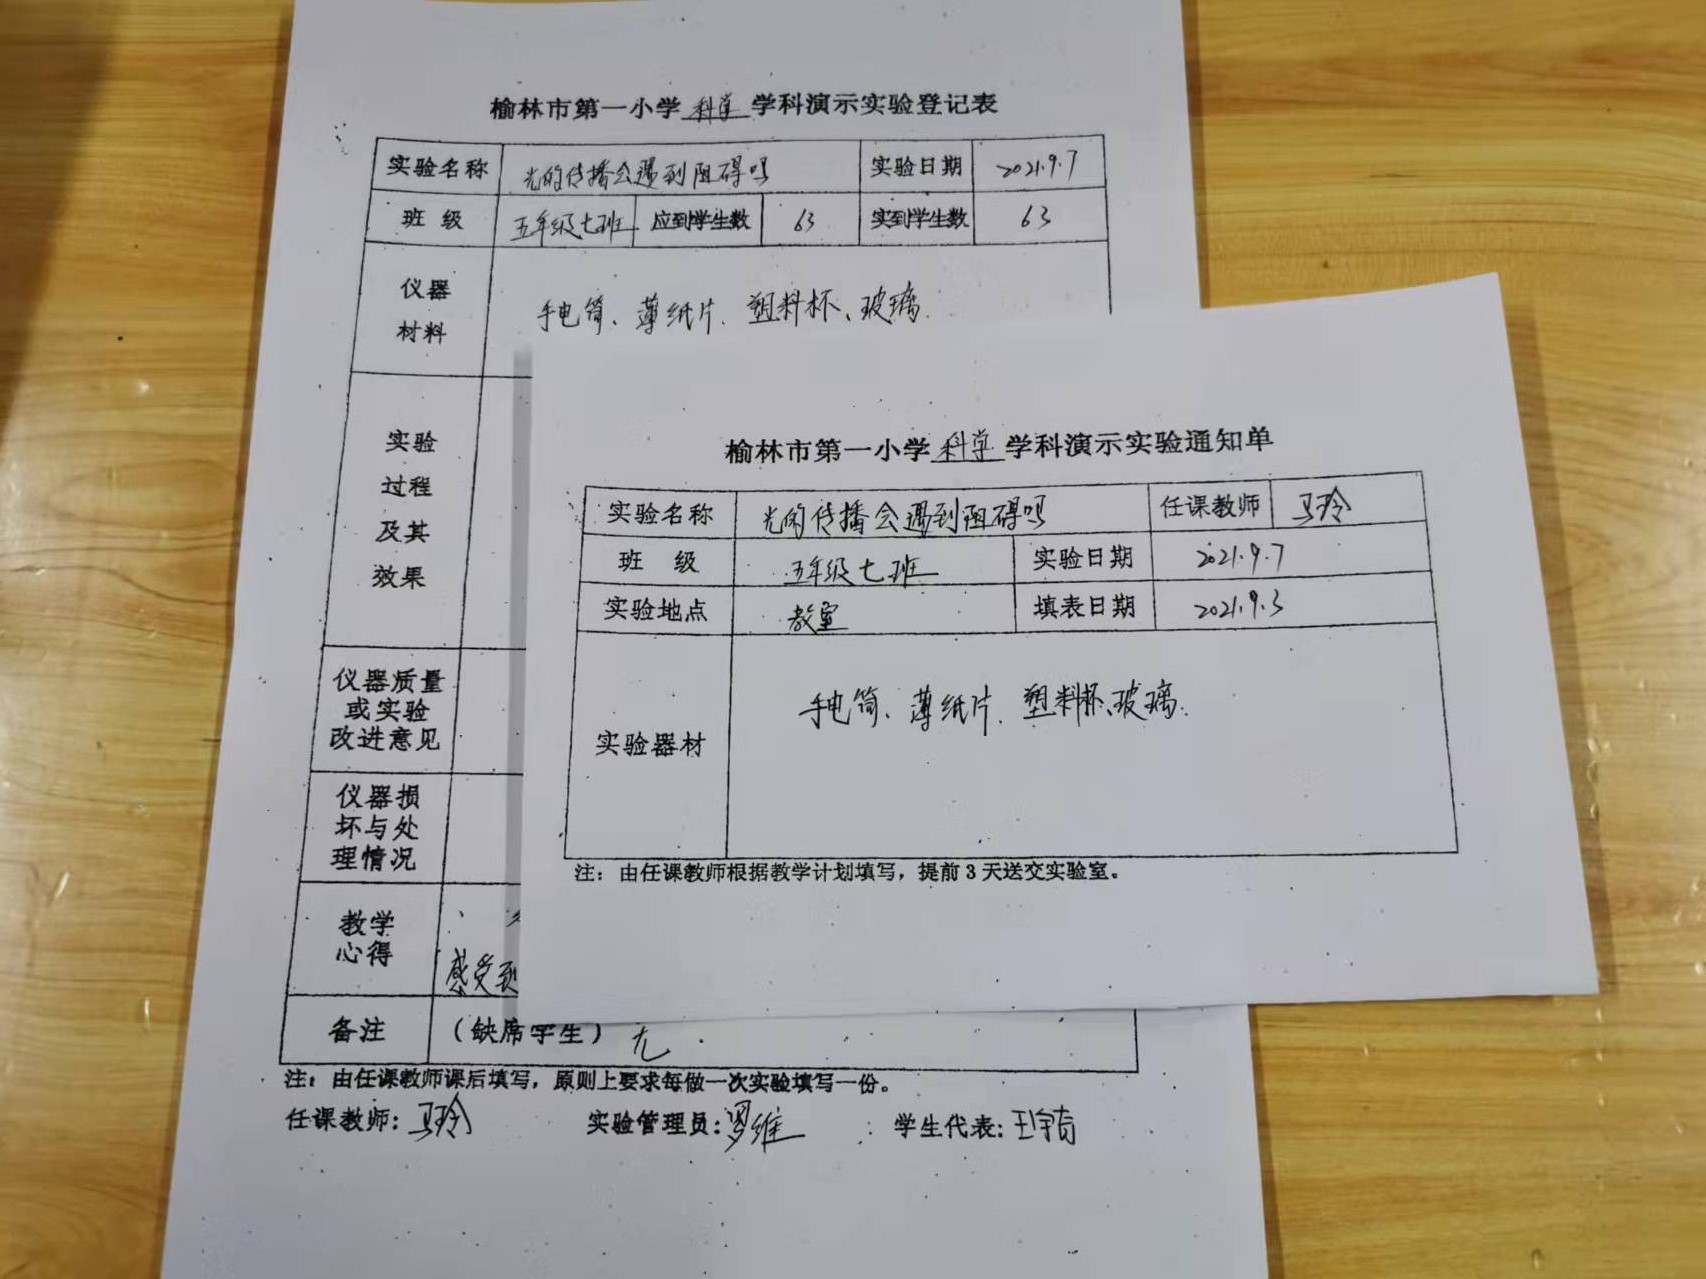 榆林市第一小学 科学 学科演示实验登记表
实验名称 光的传播会遇到阻碍吗 实验日期 2021.9.7
班 级 五年级七班 应到学生数 63 实到学生数 63
仪器
材料
手电筒、薄纸片、塑料杯、玻璃.
实验
过程
及其
效果
仪器质量
或实验
改进意见
仪器损
坏与处
理情况
教学
心得
感受到
备注 (缺席学生) 无
注：由任课教师课后填写，原则上要求每做一次实验填写一份。
任课教师: 马玲 实验管理员: 罗维 学生代表:
榆林市第一小学 科学 学科演示实验通知单
实验名称 光的传播会遇到阻碍吗 任课教师 马玲
班 级 五年级七班 实验日期 2021.9.7
实验地点 教室 填表日期 2021.9.3
实验器材 手电筒、薄纸片、塑料杯、玻璃.
注：由任课教师根据教学计划填写，提前3天送交实验室。